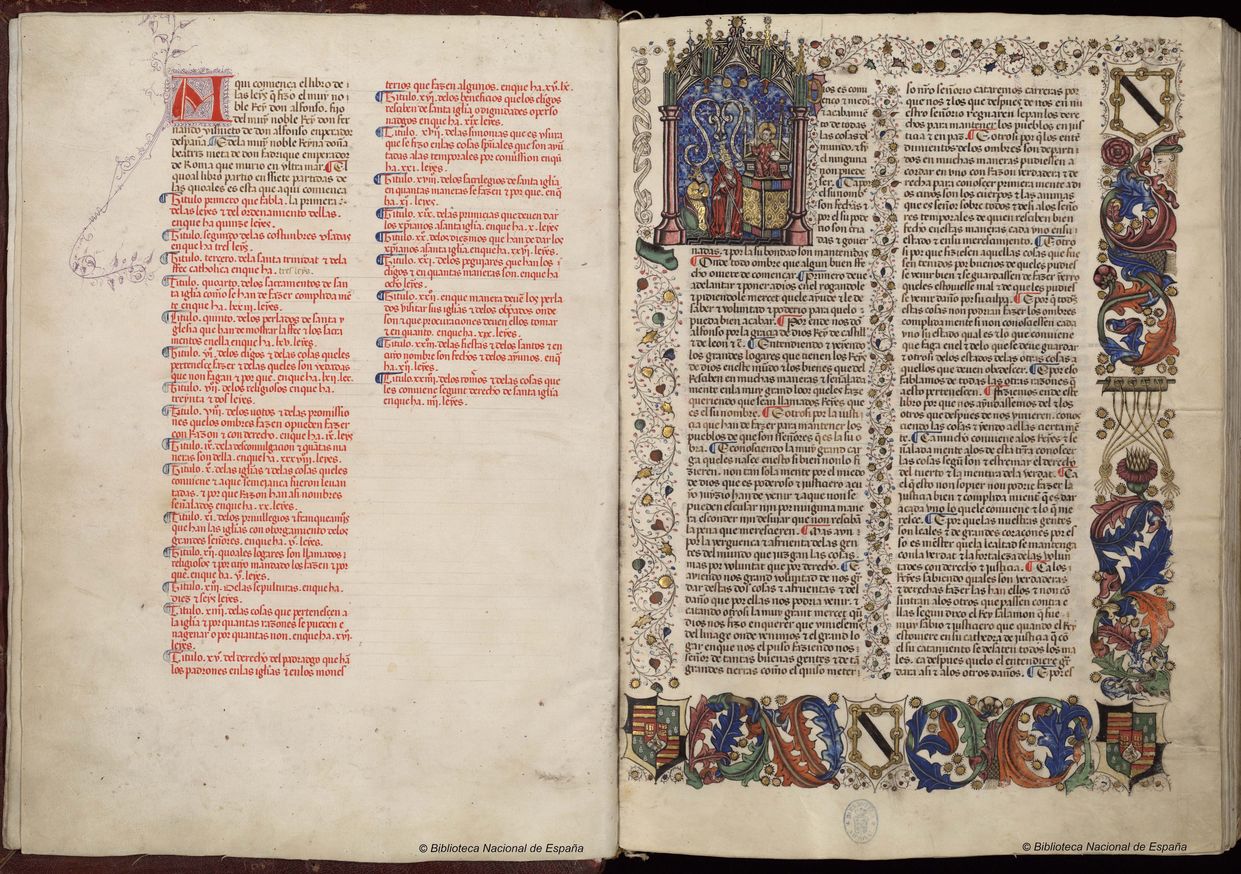 qui comença el libro de
las leys q̃ fizo el muy no
ble Rey don alfonso. fijo
del muy noble Rey don ferr
nando visnieto de don alfonso enperador
despaña ⁊ dela muy noble Reyna doña
beatris nieta de don fadrique emperador
de Roma que murio en vltra mar. El
qual libro partio en siete partidas de
las quales es esta que aqui comença
Titulo primero que fabla. la primera
delas leyes ⁊ del ordenamiento dellas.
en que ha quinze leyes.
Titulo. segundo delas costunbres vsadas
en que ha tres leyes.
Titulo. tercero. dela santa trinitat ⁊ dela
ffe catholica en que ha. tres leyes.
Titulo. quarto. delos sacramentos de san
ta iglia como se han de fazer complida mẽ
te en que ha. lxxiii. leyes.
Titulo. quinto. delos perlados de santa y
glesia que han de mostrar la ffe ⁊ los sacra
mentos en ella en que ha. lxv. leyes.
Titulo. vj. delos cligos ⁊ delas cosas queles
pertenesce fazer ⁊ delas queles son vedadas
que non fagan ⁊ por que. en que ha. lxij. lex.
Titulo. vij. delos religiosos en que ha.
treynta ⁊ dos leyes.
Titulo. viij. delos votos ⁊ delas promissio
nes quelos ombres fazen o pueden fazer
con Razon ⁊ con derecho. en que ha. ix. leys
Titulo. ix. dela descomulgacion ⁊ quãtas ma
neras son della. en que ha. xxxviij. leyes.
Titulo. x. delas iglias ⁊ delas cosas queles
conviene ⁊ a que semejança fueron levan
tadas. ⁊ por que Razon han asi nombres
señalados en que ha. xx. leyes.
Titulo. xj. delos privillegios ⁊ franquezas
que han las iglias con otorgamiento delos
grandes señores. en que ha. v. leyes.
Titulo. xij. quales logares son llamados
religiosos ⁊ por cuyo mandado los fazen ⁊ por
que. en que ha. v. leyes.
Titulo. xiij. delas sepulturas. en que ha.
diez ⁊ seys leyes.
Titulo. xiiij. delas cosas que pertenescen a
la iglia ⁊ por quantas razones se pueden e
nagenar o por quantas non. en que ha. xvj.
leyes.
Titulo. xv. del derecho del padradgo que hã
los padrones en las iglias ⁊ en los mones
terios que fazen algunos. en que ha. xv. lex.
Titulo. xvj. delos beneficios quelos cligos
resciben de santa iglia o dignidades o perso
nadgos en que ha. xix. leyes.
Titulo. xvij. delas simonias que es vsura
que se fizo en las cosas spũales que son ayũ
tadas alas temporales por comission en q̃
ha. xxi. leyes.
Titulo. xviij. delos sacrilegios de santa iglia
en quantas maneras se fazen ⁊ por que. en q̃
ha. xij. leyes.
Titulo. xix. delas primicias que deuen dar
los xp̃ianos a santa iglia. en que ha. x. leyes
Titulo. xx. delos diezmos que han de dar los
xp̃ianos a santa iglia. en que ha. xxvj. leyes.
Titulo. xxj. delos pegujares que han los
cligos ⁊ en quantas maneras son. en que ha
ocho leyes.
Titulo. xxij. en que manera deuẽ los perla
dos visitar sus iglias ⁊ delos obispados onde
son ⁊ que procuraciones deuen ellos tomar
⁊ en quanto. en que ha. xix. leyes.
Titulo. xxiij. delas fiestas ⁊ delos santos en
cuyo nombre son fechos ⁊ delos ayunos. en q̃
ha. xij. leyes.
Titulo. xxiiij. delos romeros ⁊ delas cosas que
les conviene segunt derecho de santa iglia
en que ha. iiij. leyes.
ios es comi
enço ⁊ medi
o ⁊ acabamiẽ
to de todas
las cosas del
mundo. ⁊ sy
el ninguna
non puede
ser. Ca por
el su nombre
son fechas ⁊
por el su pode
rio son cria
das ⁊ gouer
nadas. ⁊ por la su bondad son mantenidas
Onde todo ombre que algun bien ffe
cho oviere de començar. Primero deue
adelantar ⁊ poner a dios en el rogandole
⁊ pidiendole mercet que le ayude ⁊ le de
saber ⁊ voluntad ⁊ poderio para que lo
pueda bien acabar. Por ende nos don
alfonso por la graçia de dios Rey de castill
⁊ de leon ⁊ c̃. Entendiendo ⁊ veyendo
los grandes logares que tienen los Reys
de dios en este mũdo ⁊ los bienes que del
Resciben en muchas maneras ⁊ señalada
mente en la muy grand loor queles faze
queriendo que sean llamados Reyes que
es el su nombre. Otrosi por la iusti
çia que han de fazer para mantener los
pueblos de que son sseñores q̃ es la su o
bra. E conosciendo la muy grand car
ga queles nasce en esto si bien non lo fi
zieren. non tan sola mente por el miedo
de dios que es poderoso ⁊ justiciero a cu
yo juyzio han de venir ⁊ a que non se
pueden escusar nin por ninguna mane
ra esconder nin desuiar que non reciba
la pena que merescieren. Mas avn
por la verguença ⁊ afruenta delas gen
tes del mundo que juzgan las cosas
mas por voluntat que por derecho. E
aviendo nos grand voluntad de nos gr̃
dar destas dos cosas ⁊ afruentas ⁊ del
daño que por ellas nos podria venir. ⁊
catando otrosi la muy grant mercet que
dios nos fizo en querer que viniesemos
del linage onde venimos ⁊ el grand lo
gar en que nos el puso faziendo nos
señor de tantas buenas gentes ⁊ de tã
grandes tierras como el quiso meter
so nr̃o señorio cataremos carreras por
que nos ⁊ los que despues de nos en nu
estro señorio regnaren sepan los dere
chos para mantener los pueblos en jus
tiçia ⁊ en paz. Otrosi por q̃ los ente
dimientos de los ombres son departi
dos en muchas maneras pudiessen a
cordar en vno con Razon verdadera ⁊ de
recha para conoscer primera mente a di
os cuyos son los cuerpos ⁊ las animas
que es señor sobre todos ⁊ desi a los seño
res temporales de quien reciben bien
fecho en estas maneras cada vno en su
estado ⁊ en su merescimiento. Otro
si por que fiziessen aquellas cosas que fue
sen tenidos por buenos de queles pudies
se venir bien ⁊ se guardassen de fazer yerro
queles estouiesse mal ⁊ de queles pudies
se venir daño por su culpa. E por q̃ todas
estas cosas non podrian fazer los ombres
complidamente si non conosciessen cada
vno su estado qual es ⁊ lo que conviene
que faga en el ⁊ delo que se deue guardar
⁊ otrosi delos estados delas otras cosas a
quellos que deuen obedescer. E por eso
fablamos de todas las otras razones q̃
a esto pertenescen. Fiziemos ende este
libro por que nos ayudassemos del ⁊ los
otros que despues de nos viniesen. conos
ciendo las cosas ⁊ oyendo aellas cierta mẽ
te. Ca mucho conviene alos Reyes ⁊ se
ñalada mente alos de esta tr̃a conoscer
las cosas segũ son ⁊ estremar el derecho
del tuerto ⁊ la mentira dela verdat. Ca
el q̃ esto non sopier non podrie fazer la
justiçia bien ⁊ complida miente q̃ es dar
a cada vno lo quele conviene ⁊ lo q̃ me
resce. E por que las nuestras gentes
son leales ⁊ de grandes coraçones por es
so es mester que la lealtad se mantenga
con la verdat ⁊ la fortaleza delas volun
tades con derecho ⁊ justiçia. Ca los
Reyes sabiendo quales son verdaderas
⁊ derechas fazer las han ellos ⁊ non cõ
sintran alos otros que passen contra e
llas segun dixo el Rey salamon q̃ fue
muy sabio ⁊ justiciero que quando el Rey
estouiere en su cathedra de justiçia q̃ cõ
el su catamiento se desaten todos los ma
les. ca despues que lo entendiere gr̃
dara asi ⁊ alos otros daños. E por el
© Biblioteca Nacional de España
© Biblioteca Nacional de España